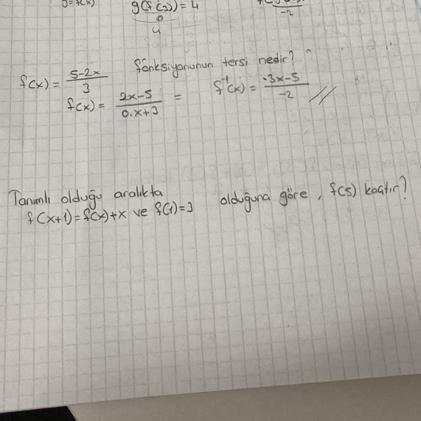 y=f(x)
g(f(2))=4
-2
4
f(x)= 5-2x / 3 fonksiyonunun tersi nedir?
f(x)= 2x-5 / 0.x+3 = f⁻¹(x)= -3x-5 / -2 //
Tanımlı olduğu aralıkta
f(x+1)=f(x)+x ve f(1)=3 olduğuna göre, f(5) kaçtır?